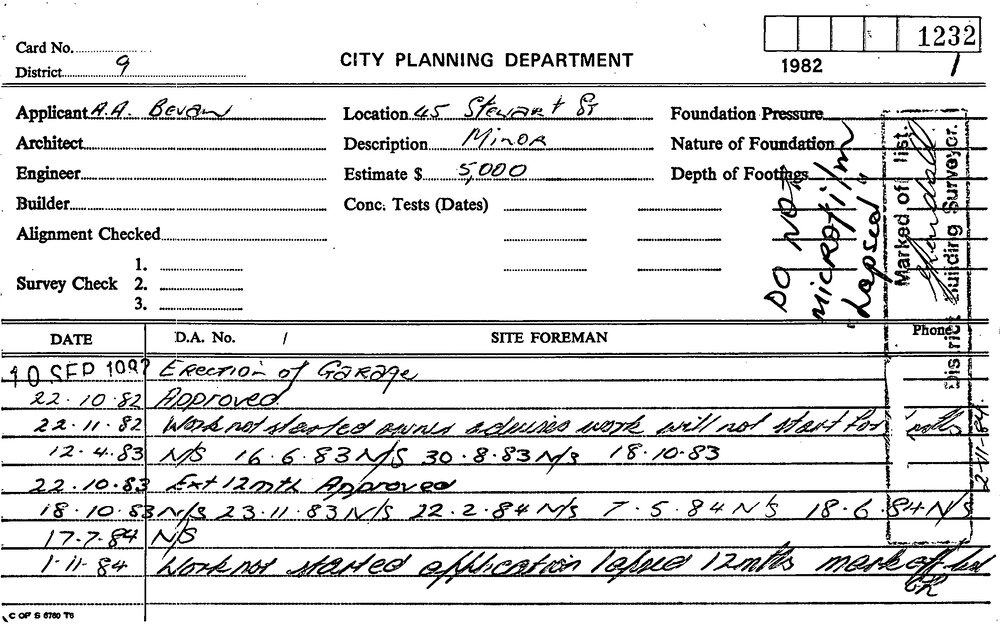 1232
Card No.
District 9
CITY PLANNING DEPARTMENT
1982
1
Applicant A.A. Bevan
Location 45 Stewart St
Foundation Pressure
Architect
Description Minor
Nature of Foundation
Engineer
Estimate $ 5,000
Depth of Footings
Builder
Conc. Tests (Dates)
Alignment Checked
Survey Check
1.
2.
3.
DO NOT
microfilm
"Lapsed"
Marked off list.
District Building Surveyor.
2-11-84.
DATE
D.A. No. /
SITE FOREMAN
Phone
10 SEP 1982 Erection of Garage
22.10.82 Approved
22.11.82 Work not started owner advises work will not start for
12.4.83 N/S 16.6.83 N/S 30.8.83 N/S 18.10.83
22.10.83 Ext 12mth Approved
18.10.83 N/S 23.11.83 N/S 22.2.84 N/S 7.5.84 N/S 18.6.84 N/S
17.7.84 N/S
1.11.84 Work not started application lapsed 12mths mark off list
C OF S 6760 T6